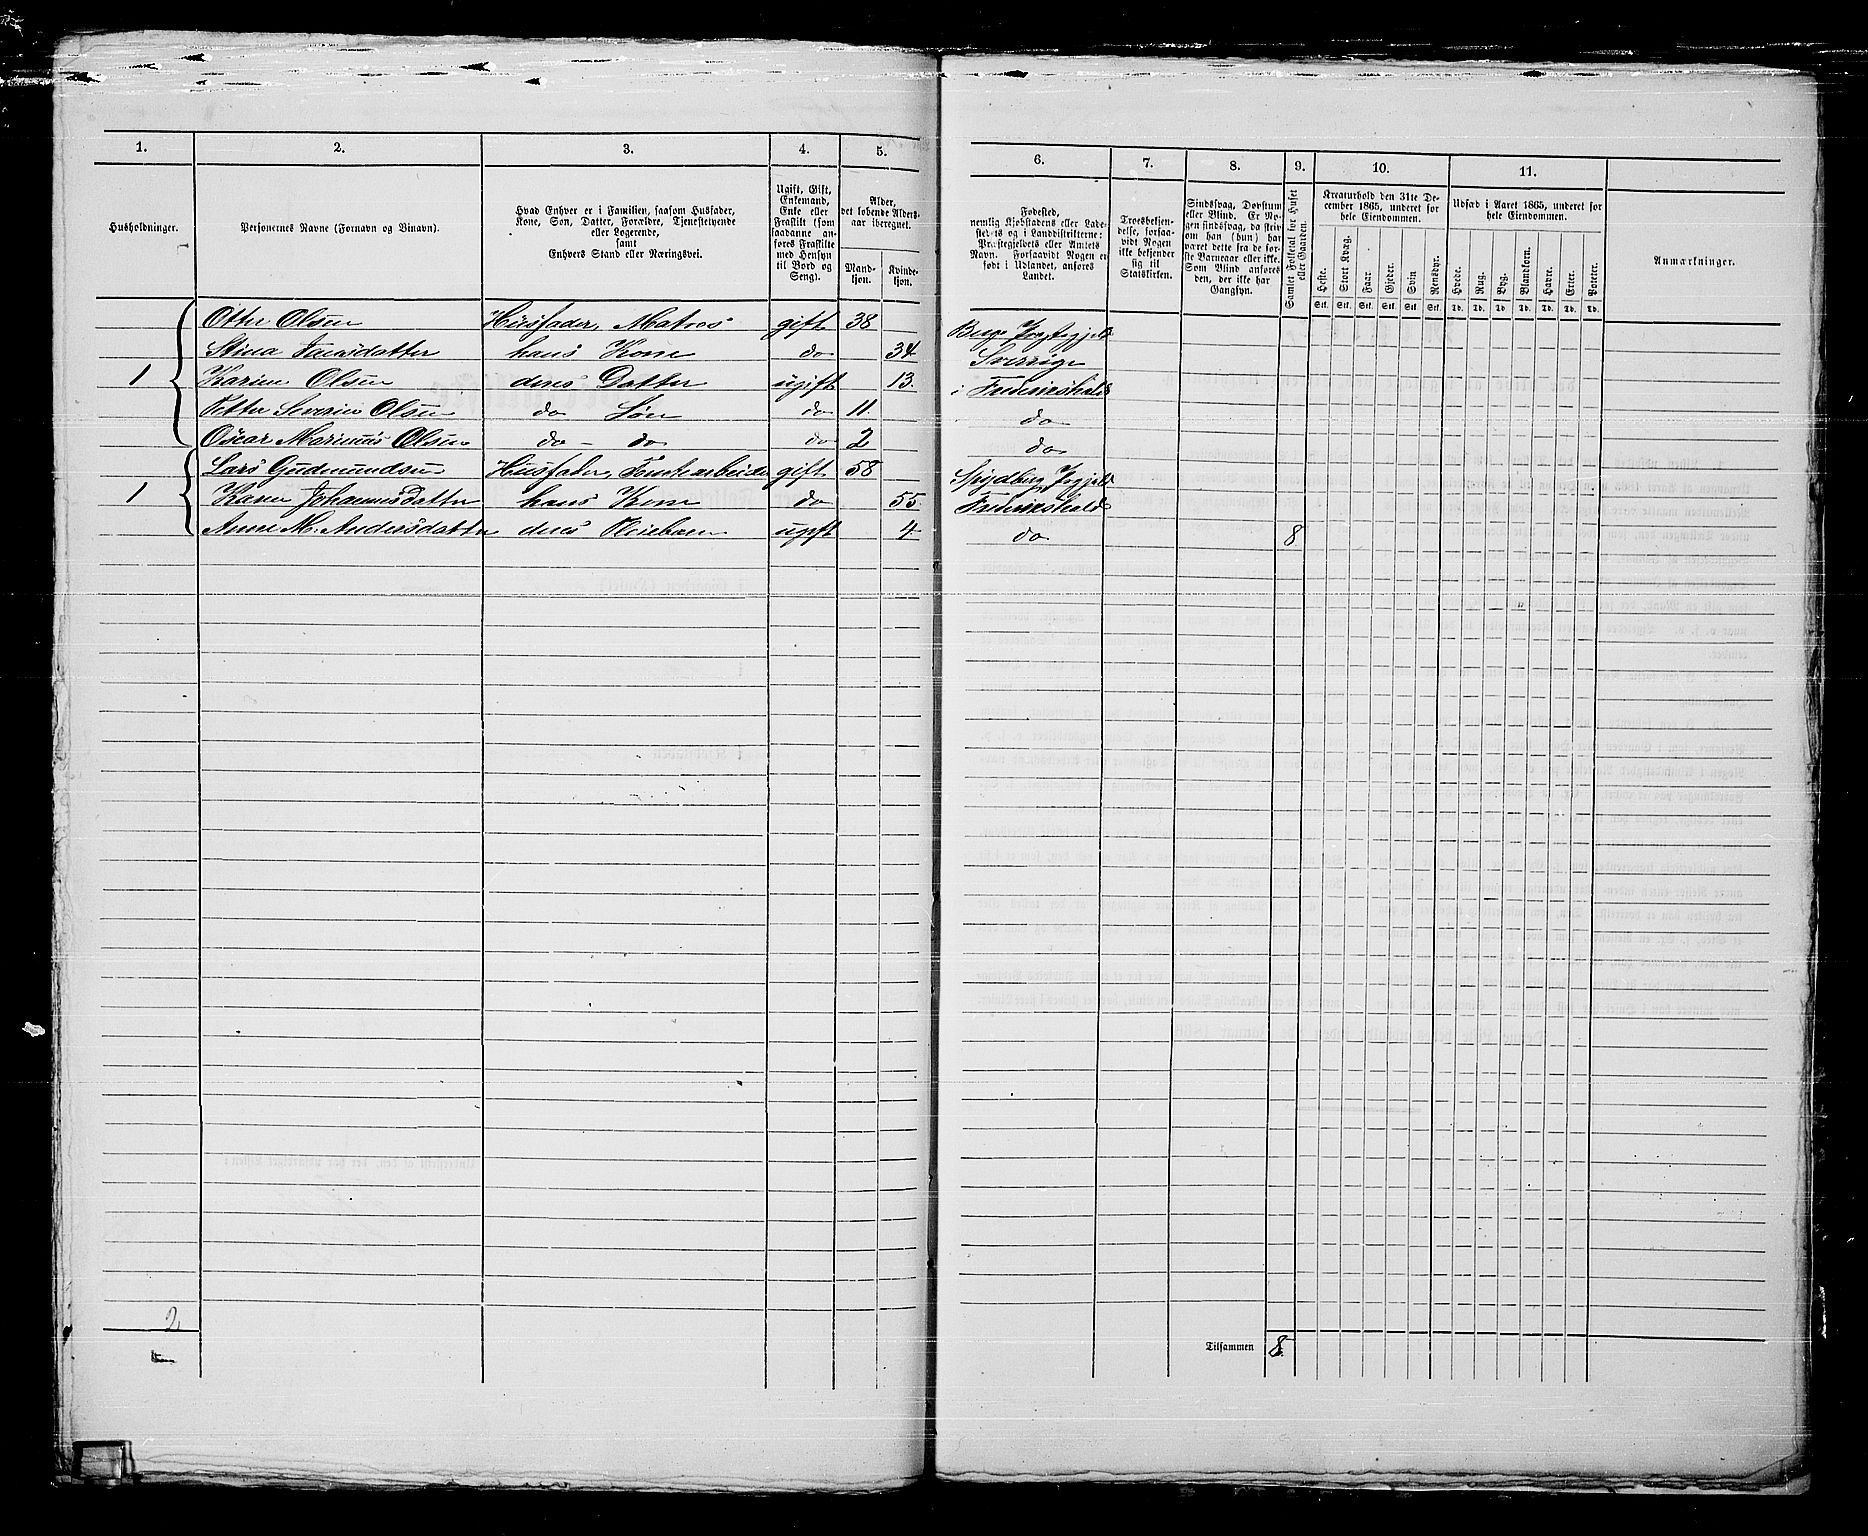 1. 2. 3. 4. 5. 6. 7. 8. 9. 10. 11.
Husholdninger.
Personernes Navne (Fornavn og Binavn).
Hvad Enhver er i Familien, saasom Husfader,
Kone, Søn, Datter, Forældre, Tjenestetyende
eller Logerende,
samt
Enhvers Stand eller Næringsvei.
Ugift, Gift,
Enkemand,
Enke eller
Fraskilt (som
saadanne an-
føres Fraskilte
med Hensyn
til Bord og
Seng).
Alder,
det løbende Alders-
aar iberegnet.
Mand-
kjøn.
Kvinde-
kjøn.
Fødested,
nemlig Kjøbstadens eller Lade-
stedets og i Landdistrikterne:
Præstegjeldets eller Amtets
Navn. Forsaavidt Nogen er
født i Udlandet, anføres
Landet.
Troesbekjen-
delse, forsaa-
vidt Nogen
ikke bekjender
sig til
Statskirken.
Sindssvag, Døvstum
eller Blind. Er No-
gen sindssvag, da skriv
om han (hun) har
været dette fra de før-
ste Barneaar eller ikke.
Som Blind anføres
den, der ikke har
Gangsyn.
Samlet Folketal for Huset
eller Gaarden.
Kreaturhold den 31te De-
cember 1865, underet for
hele Eiendommen.
Heste. Stort Kvæg. Faar. Gjeder. Svin Rensdyr.
Stk. Stk. Stk. Stk. Stk. Stk.
Udsæd i Aaret 1865, underet for
hele Eiendommen.
Hvede. Rug. Byg. Blandkorn. Havre. Erter. Poteter.
Td. Td. Td. Td. Td. Td. Td.
Anmærkninger.
Otter Olsen Husfader, Matros gift 38
Stina do hans Kone do 34 Sverrige
1 Karine Olsen deres Datter ugift 13. i Frederikshald
Petter Severin Olsen do Søn do 11. do
Oscar Marinus Olsen do - do do 2 do
Lars Gudmundsen Husfader, gift 58 Spydberg Prgjeld
1 Karen Johannesdatter hans Kone do 55. Frederikshald
Anne M. Andersdatter deres Pleiebarn ugift 4. do 8
2
Tilsammen 8.